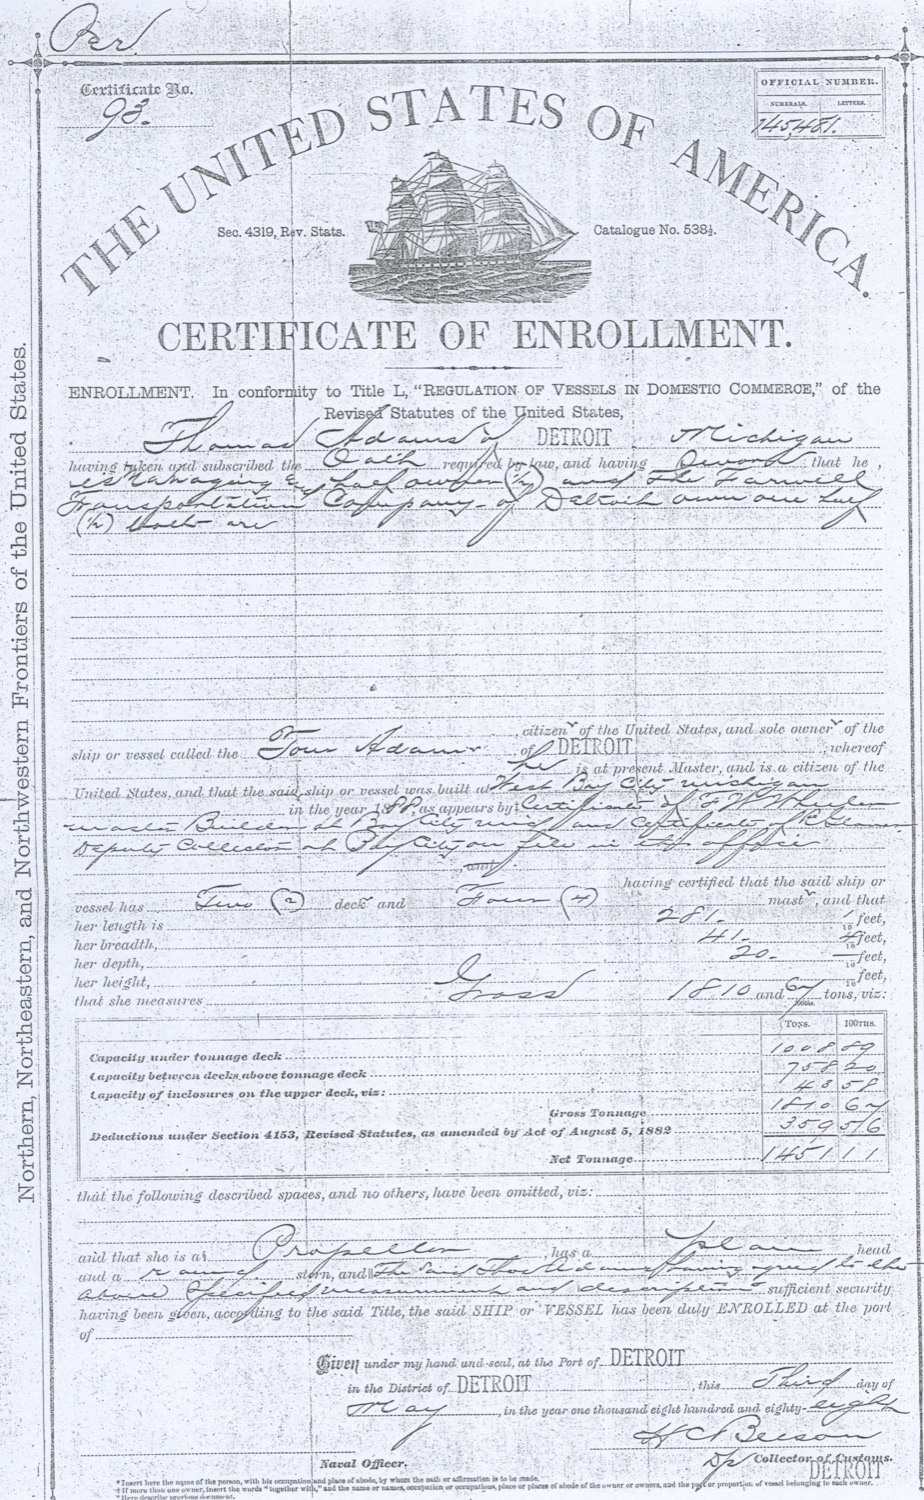 Per.
Certificate No.
93.
OFFICIAL NUMBER.
NUMERALS. LETTERS.
145,481.
THE UNITED STATES OF AMERICA.
Sec. 4319, Rev. Stats.
Catalogue No. 538½.
CERTIFICATE OF ENROLLMENT.
Northern, Northeastern, and Northwestern Frontiers of the United States.
ENROLLMENT. In conformity to Title L, "REGULATION OF VESSELS IN DOMESTIC COMMERCE," of the
Revised Statutes of the United States,
Thomas Adams of DETROIT Michigan
having taken and subscribed the Oath required by law, and having Sworn that he
is Managing and half owner (½) and The Farwell
Transportation Company of Detroit own one half
(½) both are
, citizen of the United States, and sole owner of the
ship or vessel called the Tom Adams of DETROIT , whereof
he is at present Master, and is a citizen of the
United States, and that the said ship or vessel was built at West Bay City Michigan
in the year 1888, as appears by Certificate of F W Wheeler
Master Builder at Bay City Mich and Certificate of
Deputy Collector at Bay City on file in this office
, and
having certified that the said ship or
vessel has Two (2) deck and Four (4) mast , and that
her length is 281. 1/10 feet,
her breadth, 41. 4/10 feet,
her depth, 20. —/10 feet,
her height, /10 feet,
that she measures Gross 1810 and 67/100ths tons, viz:
TONS. 100THS.
Capacity under tonnage deck 1008 89
Capacity between decks above tonnage deck 758 20
Capacity of inclosures on the upper deck, viz: 43 58
Gross Tonnage 1810 67
Deductions under Section 4153, Revised Statutes, as amended by Act of August 5, 1882 359 56
Net Tonnage 1451 11
that the following described spaces, and no others, have been omitted, viz:
and that she is a Propeller , has a plain head
and a round stern, and The Said Thos Adams having agreed to the
above Specified measurement and description sufficient security
having been given, according to the said Title, the said SHIP or VESSEL has been duly ENROLLED at the port
of
Given under my hand and seal, at the Port of DETROIT
in the District of DETROIT , this Third day of
May , in the year one thousand eight hundred and eighty-eight
H C Beeson
Naval Officer.
Dp Collector of Customs.
DETROIT
* Insert here the name of the person, with his occupation and place of abode, by whom the oath or affirmation is to be made.
† If more than one owner, insert the words "together with," and the name or names, occupation or occupations, place or places of abode of the owner or owners, and the part or proportion of vessel belonging to each owner.
‡ Here describe previous document.